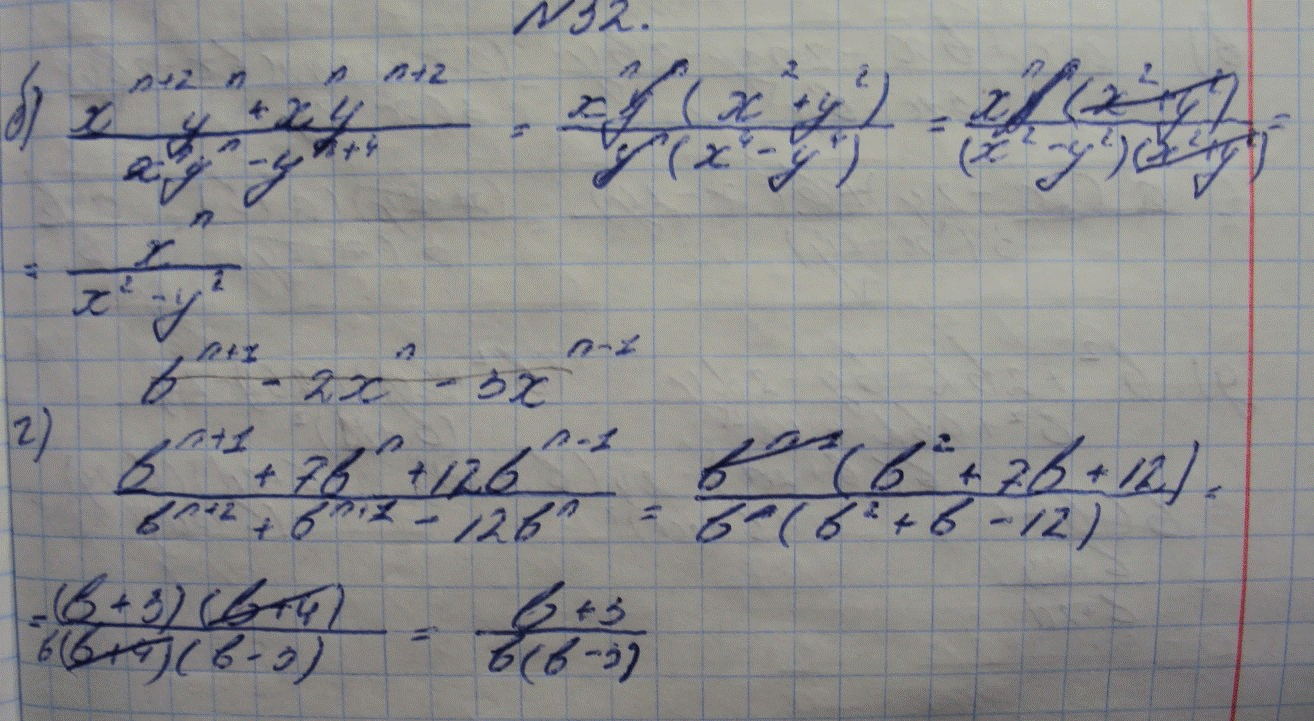 N32.
б) (x^{n+2} y^n + x^n y^{n+2}) / (x^4 y^n - y^{n+4}) = x^n y^n (x^2 + y^2) / y^n (x^4 - y^4) = x^n y^n (x^2 + y^2) / (x^2 - y^2)(x^2 + y^2) =
= x^n / (x^2 - y^2)
b^{n+1} - 2x^n - 3x^{n-1}
г) (b^{n+1} + 7b^n + 12b^{n-1}) / (b^{n+2} + b^{n+1} - 12b^n) = b^{n-1} (b^2 + 7b + 12) / b^n (b^2 + b - 12) =
= (b+3)(b+4) / b(b+4)(b-3) = (b+3) / b(b-3)